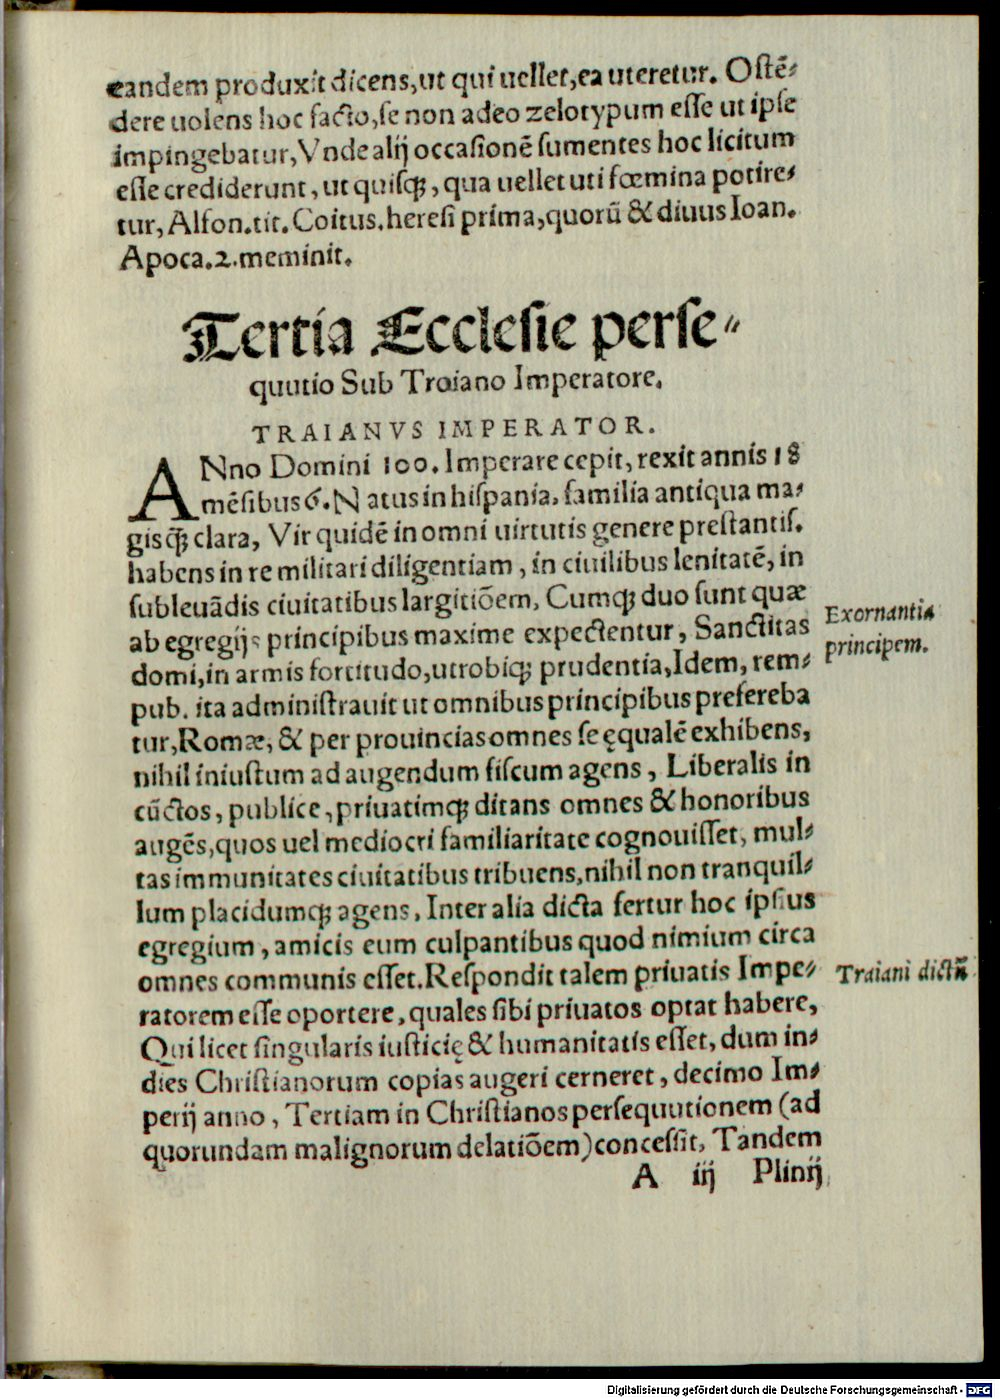 eandem produxit dicens, ut qui uellet, ea uteretur. Ostē⸗
dere uolens hoc facto, se non adeo zelotypum esse ut ipse
impingebatur, Vnde alij occasionē sumentes hoc licitum
esse crediderunt, ut quisq́ꝫ, qua uellet uti fœmina potire⸗
tur, Alfon. tit. Coitus. heresi prima, quorū & diuus Ioan.
Apoca. 2. meminit.
Tertia Ecclesie perse⸗
quutio Sub Troiano Imperatore.
TRAIANVS IMPERATOR.
ANno Domini 100. Imperare cepit, rexit annis 18
mēsibus 6. Natus in hispania, familia antiqua ma⸗
gisq́ꝫ clara, Vir quidē in omni uirtutis genere prestantis.
habens in re militari diligentiam, in ciuilibus lenitatē, in
subleuādis ciuitatibus largitiōem, Cumqꝫ duo sunt quæ
ab egregijs principibus maxime expectentur, Sanctitas
Exornantia
principem.
domi, in armis fortitudo, utrobiqꝫ prudentia, Idem, rem⸗
pub. ita administrauit ut omnibus principibus prefereba
tur, Romæ, & per prouincias omnes se ęqualē exhibens,
nihil iniustum ad augendum fiscum agens, Liberalis in
cūctos, publice, priuatimqꝫ ditans omnes & honoribus
augēs, quos uel mediocri familiaritate cognouisset, mul⸗
tas immunitates ciuitatibus tribuens, nihil non tranquil⸗
lum placidumqꝫ agens, Inter alia dicta fertur hoc ipsius
egregium, amicis eum culpantibus quod nimium circa
omnes communis esset. Respondit talem priuatis Impe⸗
Traiani dictū
ratorem esse oportere, quales sibi priuatos optat habere,
Qui licet singularis iusticię & humanitatis esset, dum in⸗
dies Christianorum copias augeri cerneret, decimo Im⸗
perij anno, Tertiam in Christianos persequutionem (ad
quorundam malignorum delatiōem) concessit, Tandem
A iij Plinij
Digitalisierung gefördert durch die Deutsche Forschungsgemeinschaft - DFG